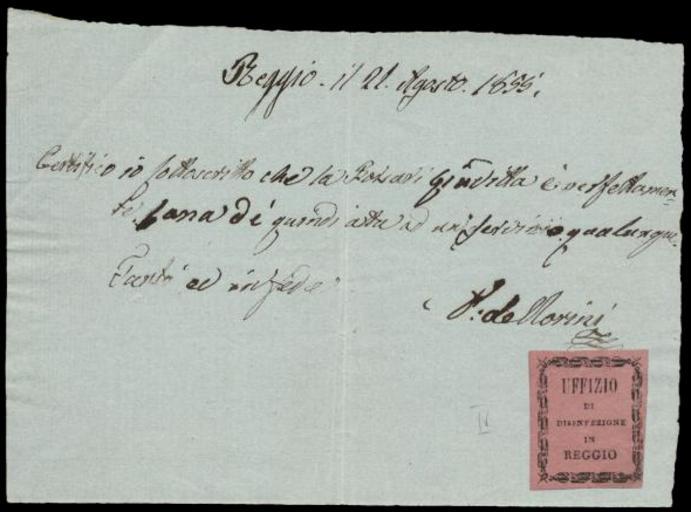 Reggio. il 21. Agosto. 1855.
Certifico io sottoscritto che la Giuditta è perfettamen-
te sana di quindi atta ad un servizio qualunque.
Tanto ed in fede
UFFIZIO
DI
DISINFEZIONE
IN
REGGIO
IV